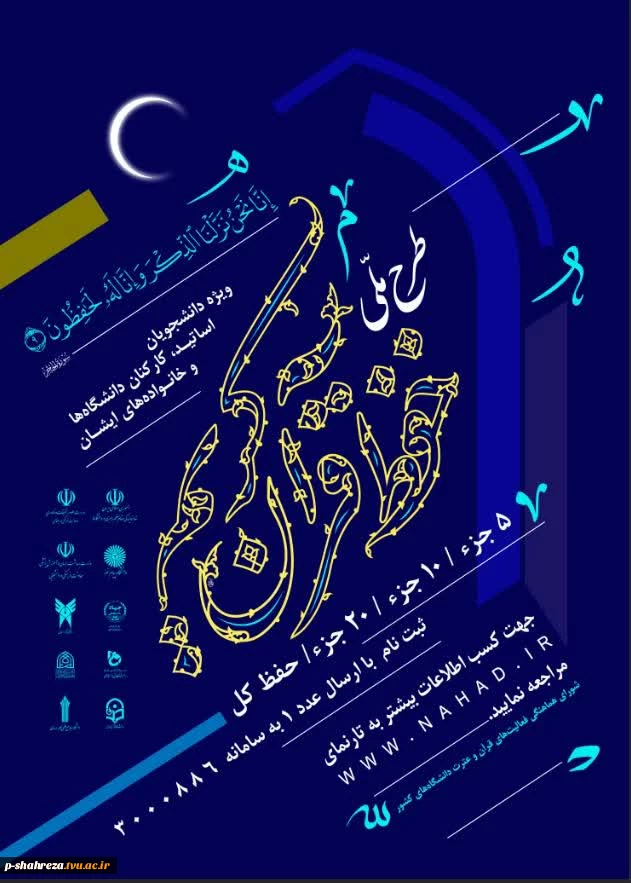 إِنَّا نَحْنُ نَزَّلْنَا الذِّكْرَ وَإِنَّا لَهُ لَحَافِظُونَ
ویژه دانشجویان
اساتید، کارکنان دانشگاه‌ها
و خانواده‌های ایشان
طرح ملّی
حفظ قرآن کریم
۵ جزء / ۱۰ جزء / ۲۰ جزء / حفظ کل
ثبت نام با ارسال عدد ۱ به سامانه ۳۰۰۰۸۸۶
جهت کسب اطلاعات بیشتر به تارنمای
WWW.NAHAD.IR
مراجعه نمایید.
شورای هماهنگی فعالیت‌های قرآن و عترت دانشگاه‌های کشور
p-shahreza.tvu.ac.ir